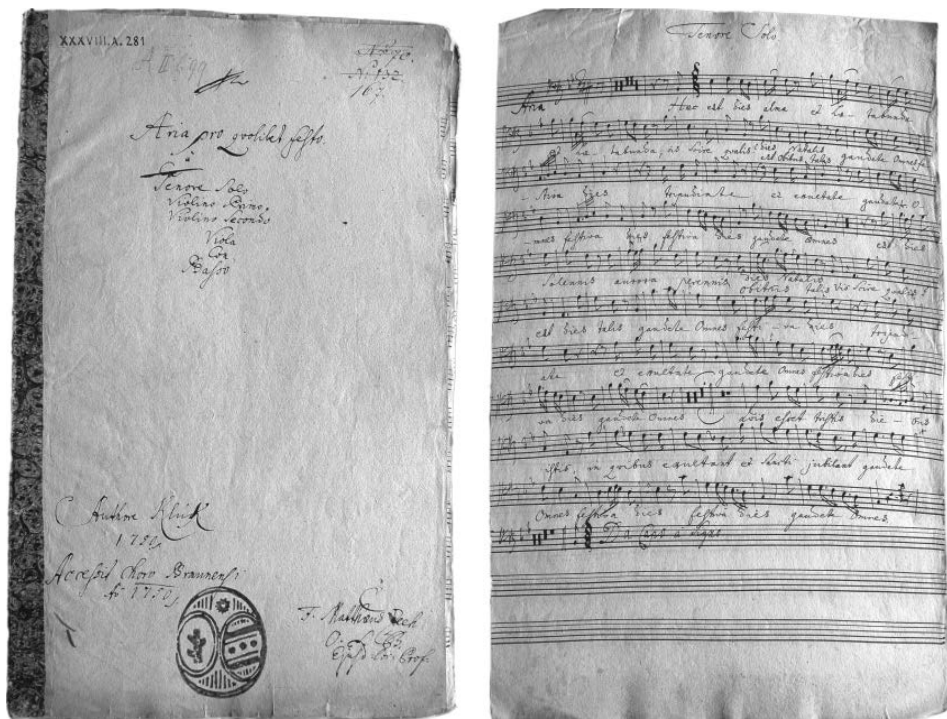 XXXVIII. A. 281
A II 6.99
No 70.
No 132
167.
Aria pro qvolibet festo.
à
Tenore Solo
Violino Primo.
Violino Secondo
Viola
Con
Basso
Authore Kluk
1750
Accessit Choro Braunensi
Ao 1750
Tenore Solo.
Aria
Haec est dies alma et lae - tabunda
et lae - tabunda, as scire qvalis? dies Natalis
est talis gaudete Omnes fe
- stiva dies tripudiate et exultate gaudete O -
- mnes festiva dies festiva dies gaudete Omnes est dies
Solennis aurora perennis dies Natalis
talis Vis Scire qvalis?
est dies talis gaudete Omnes festi - va dies tripudi -
ate et exultate gaudete Omnes festiva dies
va dies gaudete Omnes Qvis esset tristis die - bus
istis, in qvibus exultant et Sancti jubilant gaudete
Omnes festiva dies festiva dies gaudete Omnes.
Da Capo a Segno